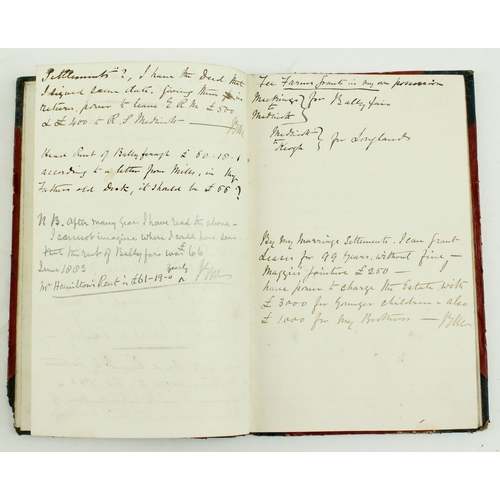 Settlements"?, I have the Deed that
I signed same date. Giving them in
return power to leave E.R.M. £500
& £400 to R.S. Medlicott —
Head Rent of Ballyforagh £60-15-1
according to a letter from Miles, in my
Fathers old Desk, it should be £66?
N.B. After many years I have read the above –
I cannot imagine where I could have seen
that the rent of Ballyfare was £66
June 1883
Mr Hamilton's Rent is £61-19-0 yearly
Fee Farm Grants in my own possession
to Medlicott } for Bally fair
Medlicott
to Keogh } for Longlands
By my Marriage Settlements. I can Grant
Leases for 99 years, without fine –
Maggies jointure £250 –
have power to charge the Estate with
£3000 for younger children – also
£1000 for my Brothers —